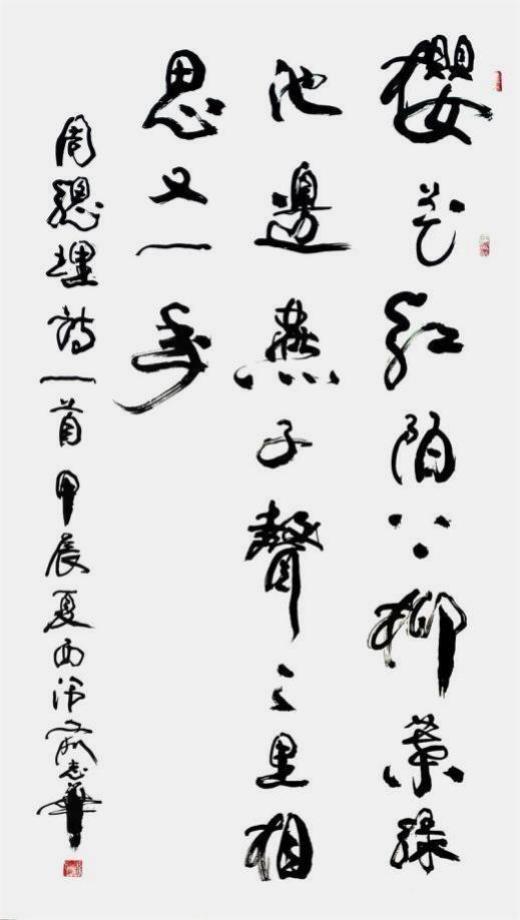 櫻花紅陌上柳葉綠
池邊燕子聲聲里相
思又一年
周總理詩一首甲辰夏西泠俞志華